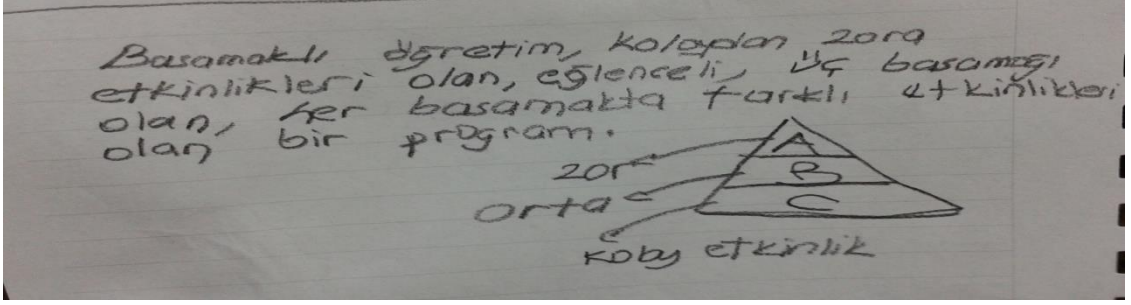 Basamaklı öğretim, kolaydan zora
etkinlikleri olan, eğlenceli, üç basamağı
olan, her basamakta farklı etkinlikleri
olan bir program.
A
zor
B
orta
C
kolay etkinlik